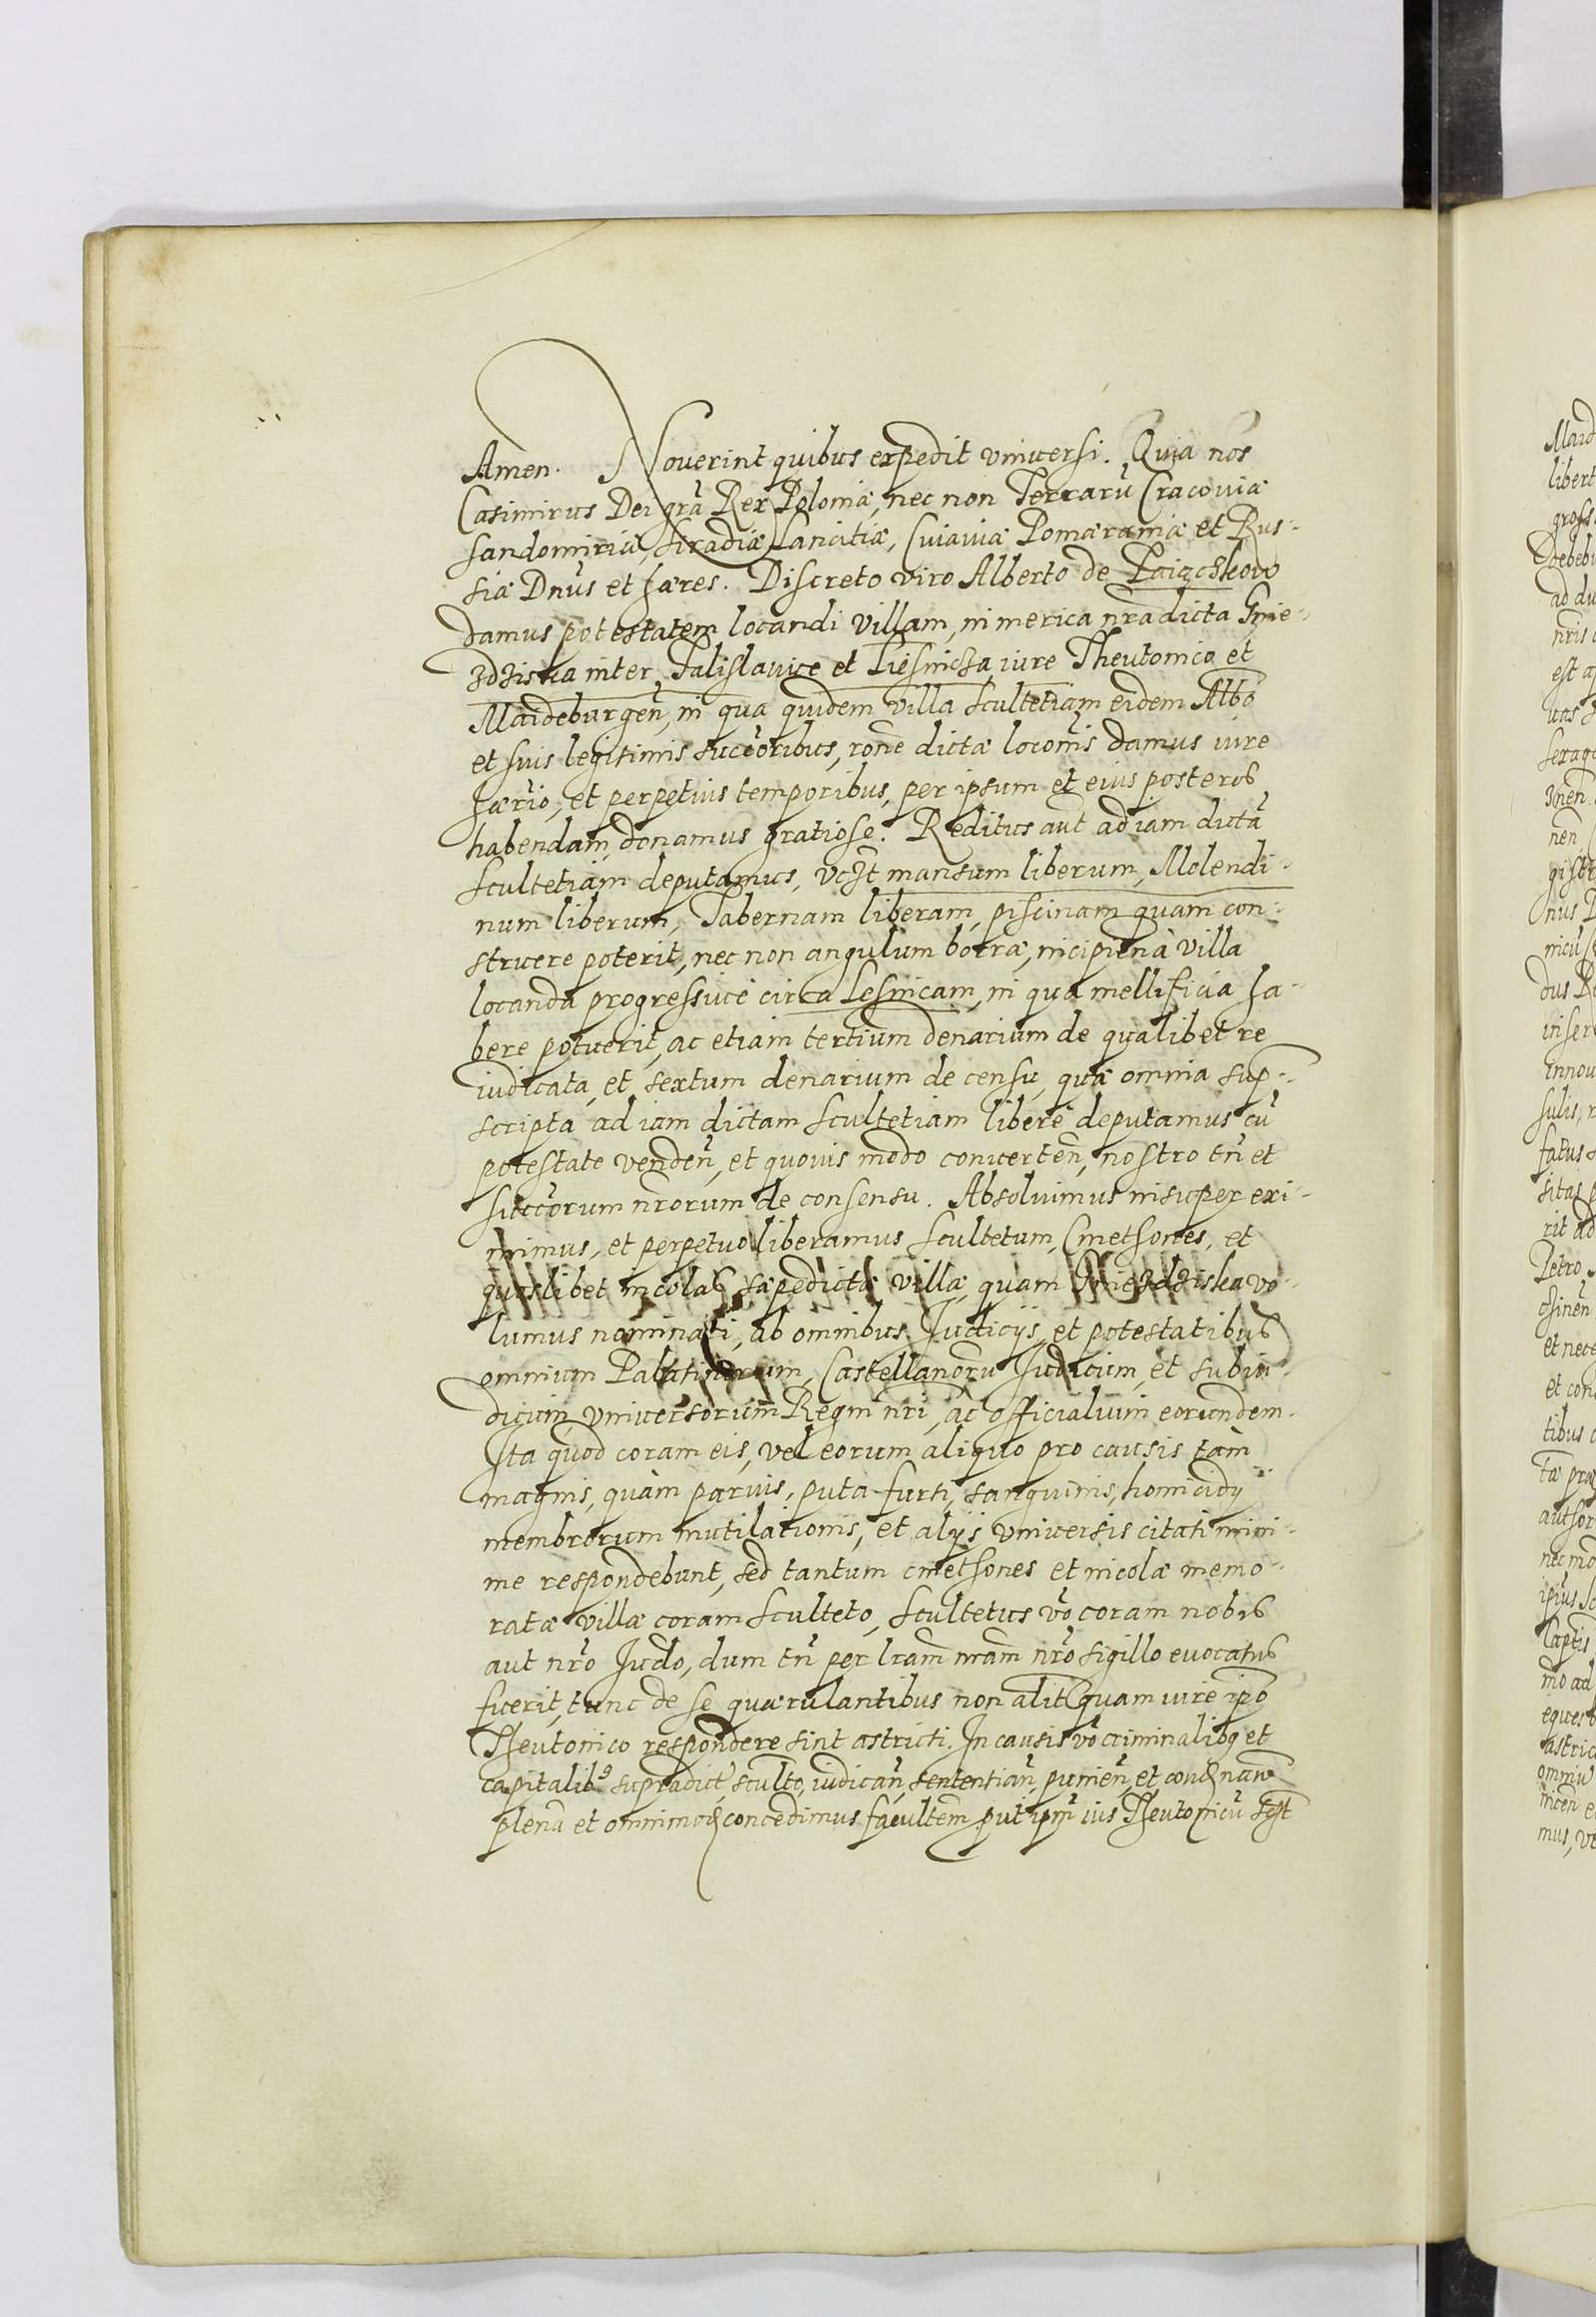 Amen. Nouerint quibus expedit vniuersi. Quia nos
Casimirus Dei grã Rex Poloniæ, nec non Terrarũ Cracouiæ
Sandomiriæ, Siradiæ Lancitiæ, Cuiauiæ Pomæraniæ et Rus-
siæ Dnũs et hæres. Discreto viro Alberto de
damus potestatem locandi villam, in merica nrã dicta Gnie-
zdziska inter Falislauice et Liesnicza iure Theutonico et
Maideburgeñ, in qua quidem villa Scultetiam eidem Albõ
et suis legitimis succõribus, rõne dictæ locõnis damus iure
hærio, et perpetuis temporibus, per ipsum et eius posteros
habendam, donamus gratiose. Reditus aut ad iam dictã
Scultetiam deputamus, vczt mansum liberum, Molendi-
num liberum, Tabernam liberam, piscinam quam con-
struere poterit, nec non angulum borræ, incipienã villa
locanda progressiuè circa Lesnicam, in qua mellificia ha-
bere potuerit, ac etiam tertium denarium de qualibet re
iudicata, et sextum denarium de censu, quæ omnia sup-
scripta ad iam dictam Scultetiam liberè deputamus cũ
potestate vendeñ, et quouis modo conuerteñ, nostro tñ et
succõrum nrõrum de consensu. Absoluimus insuper exi-
mimus, et perpetuo liberamus Scultetum, Cmethones, et
quoslibet incolas sæpedictæ villæ, quam Gniezdziska vo-
lumus nominari, ab omnibus Judicijs, et potestatibus
omnium Palatinorum, Castellanorũ Judicum, et subiu-
dicum, vniuersorum Regni nri, ac officialium eorundem.
Ita quod coram eis, vel eorum aliquo pro causis tàm
magnis, quàm paruis, puta furti, sanguinis, homicidij
membrorum mutilationis, et alijs vniuersis citati mini-
me respondebunt, sed tantum cmethones et incolæ memo-
ratæ villæ coram Sculteto, Scultetus võ coram nobis
aut nrõ Judo, dum tñ per lram nram nrõ sigillo euocatus
fuerit, tunc de se quærulantibus non alit quam iure ipõ
Theutonico respondere sint astricti. In causis võ criminalibq et
capitalibq supradict, sculto, iudicañ, sententiañ, punieñ, et condnañ
plenã et omnimod concedimus facultem put ipm ius Theutonicũ